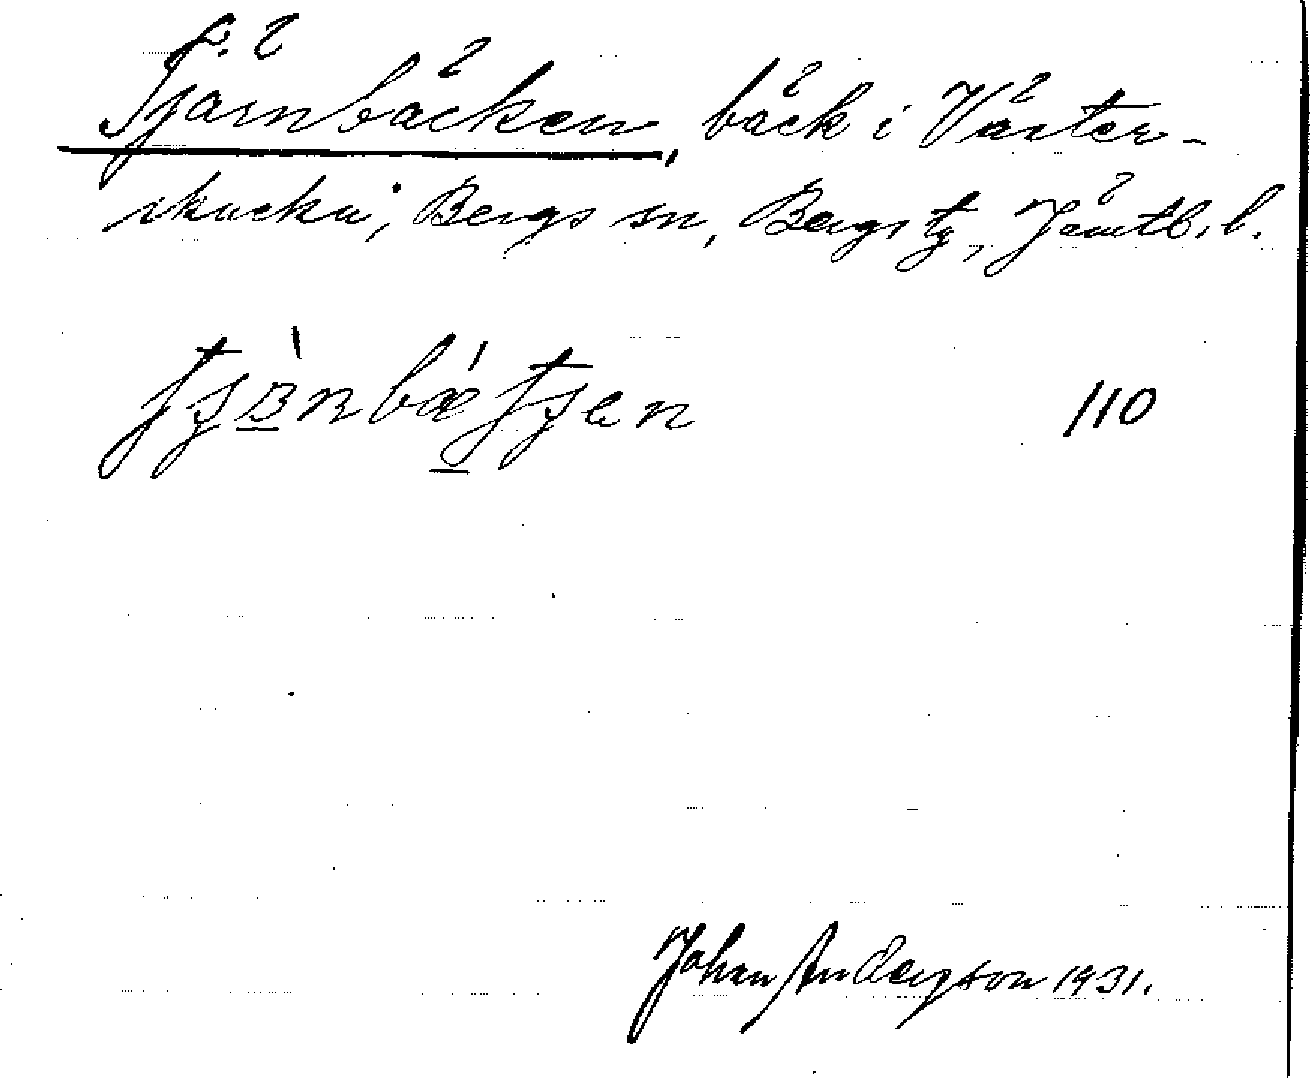 Tjärnbäcken, bäck i Väster-
skucku, Bergs sn, Bergs tg, Jämtl. l.
110
Johan Anderzson 1931.